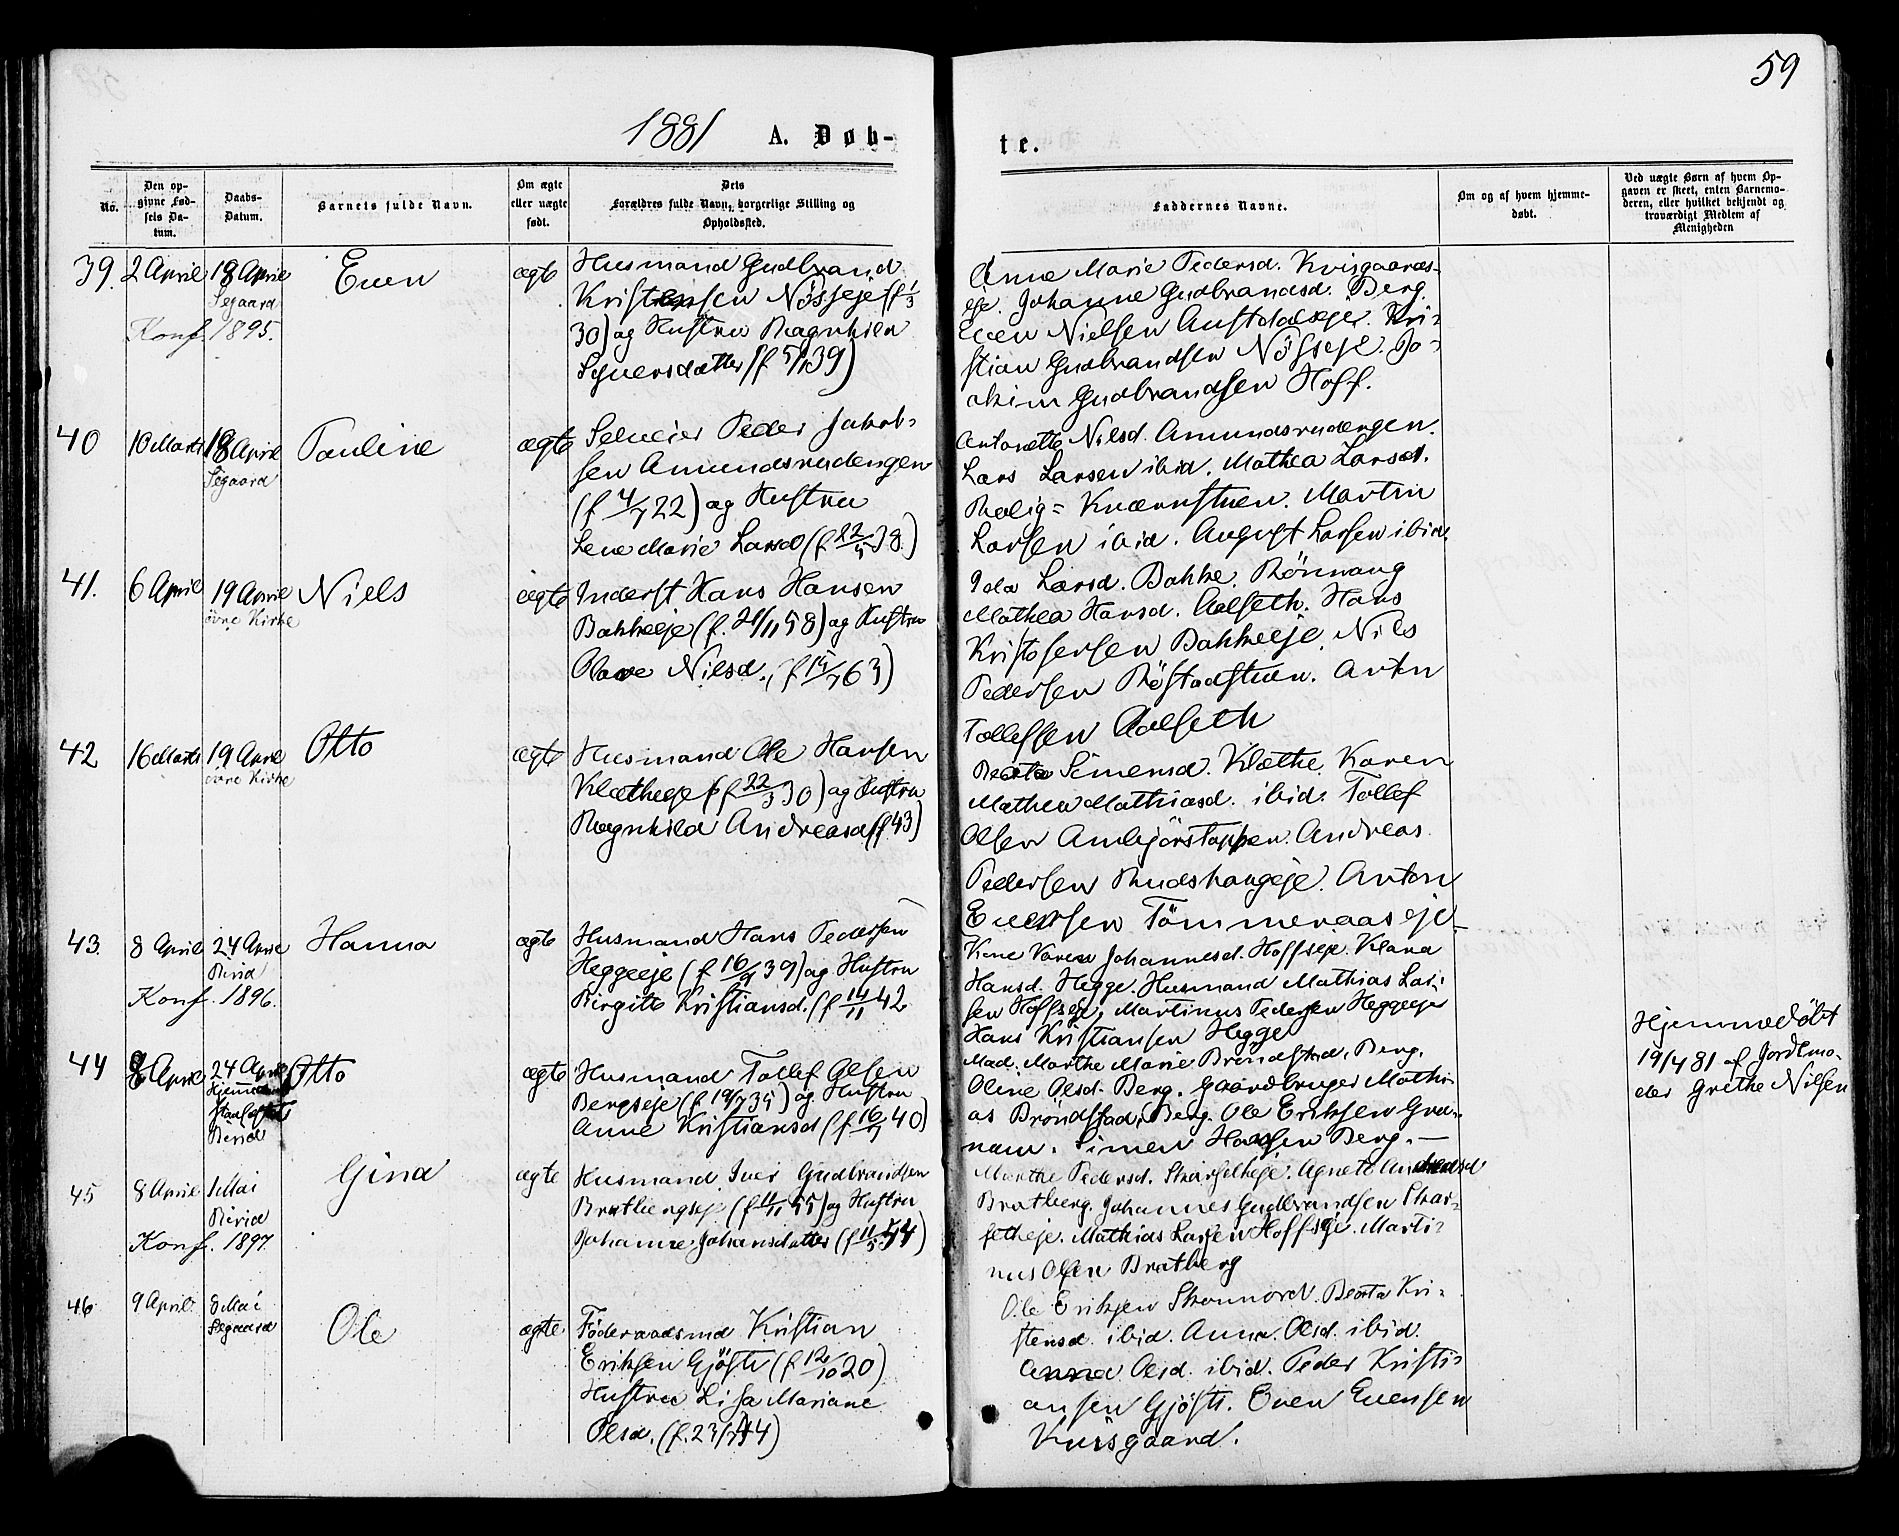 59
1881 A. Døb-
te.
No.
Den op-
givne Fød-
sels Da-
tum.
Daabs-
Datum.
Barnets fulde Navn.
Om ægte
eller uægte
født.
Dets
Forældres fulde Navn, borgerlige Stilling og
Opholdssted.
Faddernes Navne.
Om og af hvem hjemme-
døbt.
Ved uægte Børn af hvem Op-
gaven er skeet, enten Barnemo-
deren, eller hvilket bekjendt og
troværdigt Medlem af
Menigheden
39. 2 April 18 April Even ægte
Segaard
Konf. 1895.
Husmand Gudbrand
Kristensen Nösseje (f 1/3
30) ag Hustru Ragnhild
Syversdatter (f 5/1 39)
Anne Marie Pedersd. Kvisgaards-
eje. Johanne Gudbrandsd. Berg.
Even Nielsen Austdalseje. Kri-
stian Gudbrandsen Nösseje. Jo-
akim Gudbrandsen Hoff.
40 10 Marts 18 April Pauline ægte
Segaard
Selveier Peder Jakob-
sen Amundsrudengen
(f 4/7 22) ag Hustru
Lene Marie Larsd (f 22/5 38)
Antonette Nilsd. Amundsrudengen.
Lars Larsen ibid. Mathea Larsd.
Rolig= Kværnstuen. Martin
Larsen ibid. August Larsen ibid.
41. 6 April 19 April Niels ægte
övre Kirke
Inderst Hans Hansen
Bakkeeje (f. 21/11 58) ag Hustru
Olave Nilsd., (f 15/7 63)
Ida Larsd. Bakke. Rönnaug
Mathea Hansd. Aalseth. Hans
Kristofersen Bakkeeje. Nils
Pedersen Röstadstuen. Anton
Tollefsen Aalseth
42 16 Marts 19 April Otto ægte
övre Kirke
Husmand Ole Hansen
Klætheeje (f 22/3 30) ag Hustru
Ragnhild Andreasd (f 43)
Beate Simensd. Klæthe. Karen
Mathea Mathiasd. ibid. Tollef
Olsen Ambjörstappen. Andreas
Pedersen Rudshaugeje. Anton
Evensen Tömmeraaseje
43. 8 April 24 April Hanna ægte
Birid
Konf. 1896.
Husmand Hans Pedersen
Heggeeje (f 16/9 39) ag Hustru
Birgitte Kristiansd. (f 14/11 42
Kone Karen Johannesd. Hoffseje. Klara
Hansd. Hegge. Husmand Mathias Lar-
sen Hoffseje, Martinus Pedersen Heggeeje
Hans Kristiansen Hegge
44 8 April 24 April Otto ægte
Hjemme
Birid
Husmand Tollef Olsen
Bergseje (f 19/7 35) ag Hustru
Anne Kristiansd (f 16/7 40)
Mad. Marthe Marie Bröndstad, Berg.
Oline Olsd. Berg. Gaardbruger Mathi-
as Bröndstad, Berg. Ole Eriksen Gra-
nam. Simen Hansen Berg. —
Hjemmedöbt
19/4 81 af Jordemo-
der Grethe Nilsen
45 8 April 1 Mai Gina ægte
Birid
Konf. 1897.
Husmand Iver Gudbrandsen
Bratbergseje (f 11/11 55) ag Hustru
Johanne Johansdatter (f 11/5 54)
Marthe Pedersd. Skarsetheje. Agnete Andreasd
Bratberg. Johannes Gudbrandsen Skar-
setheje. Mathias Larsen Hoffseje. Marti-
nus Olsen Bratberg
46 9 April 8 Mai Ole ægte
Segaard
Föderaadsmd Kristian
Eriksen Gjösti (f 12/10 20)
Hustru Lisa Mariane
Olsd. (f. 23/7 44)
Ole Eriksen Skonnord. Beata Kri-
stensd. ibid. Anna Olsd. ibid.
Anna Olsd. ibid. Peder Kristi-
ansen Gjösti. Even Evensen
Kvisgaard.